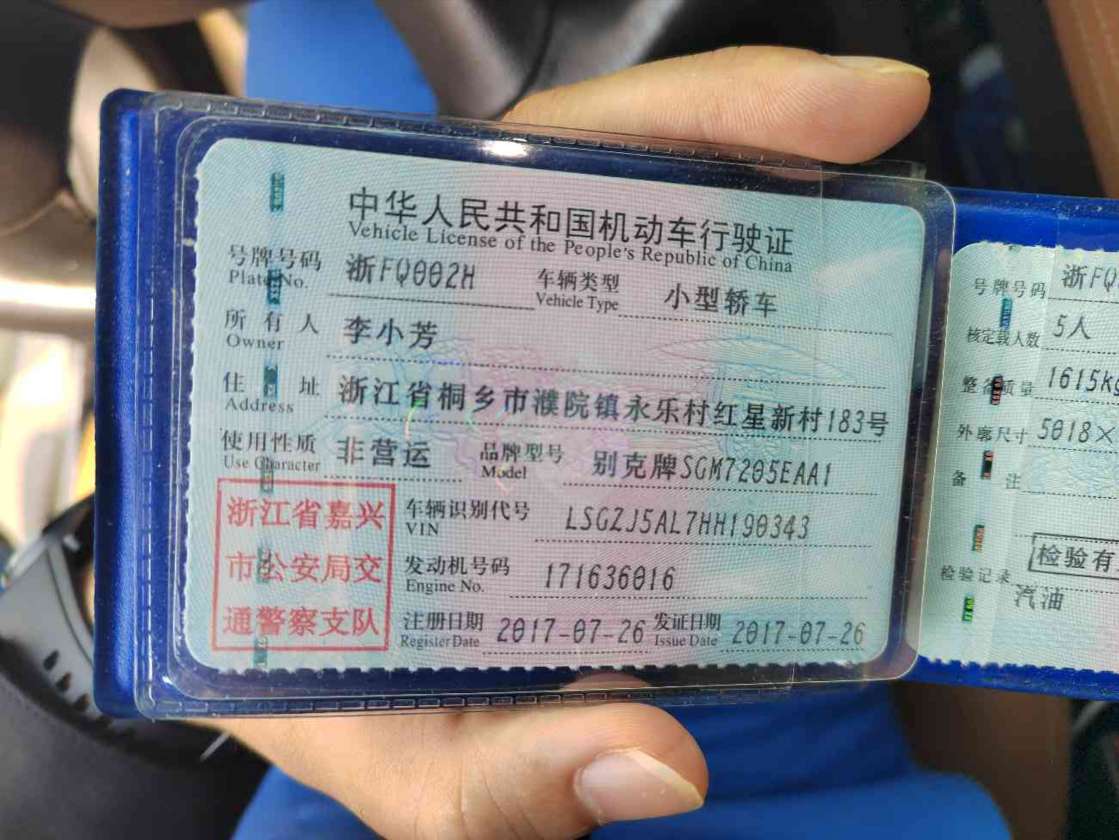 中华人民共和国机动车行驶证
Vehicle License of the People's Republic of China
号牌号码 浙FQ002H 车辆类型 小型轿车
Plate No. Vehicle Type
所有人 李小芳
Owner
住址 浙江省桐乡市濮院镇永乐村红星新村183号
Address
使用性质 非营运 品牌型号 别克牌SGM7205EAA1
Use Character Model
浙江省嘉兴
市公安局交
通警察支队
车辆识别代号 LSGZJ5AL7HH190343
VIN
发动机号码 171636016
Engine No.
注册日期 2017-07-26 发证日期 2017-07-26
Register Date Issue Date
号牌号码 浙FQ
核定载人数 5人
整备质量 1615Kg
外廓尺寸 5018×
备注
检验有
检验记录
汽油